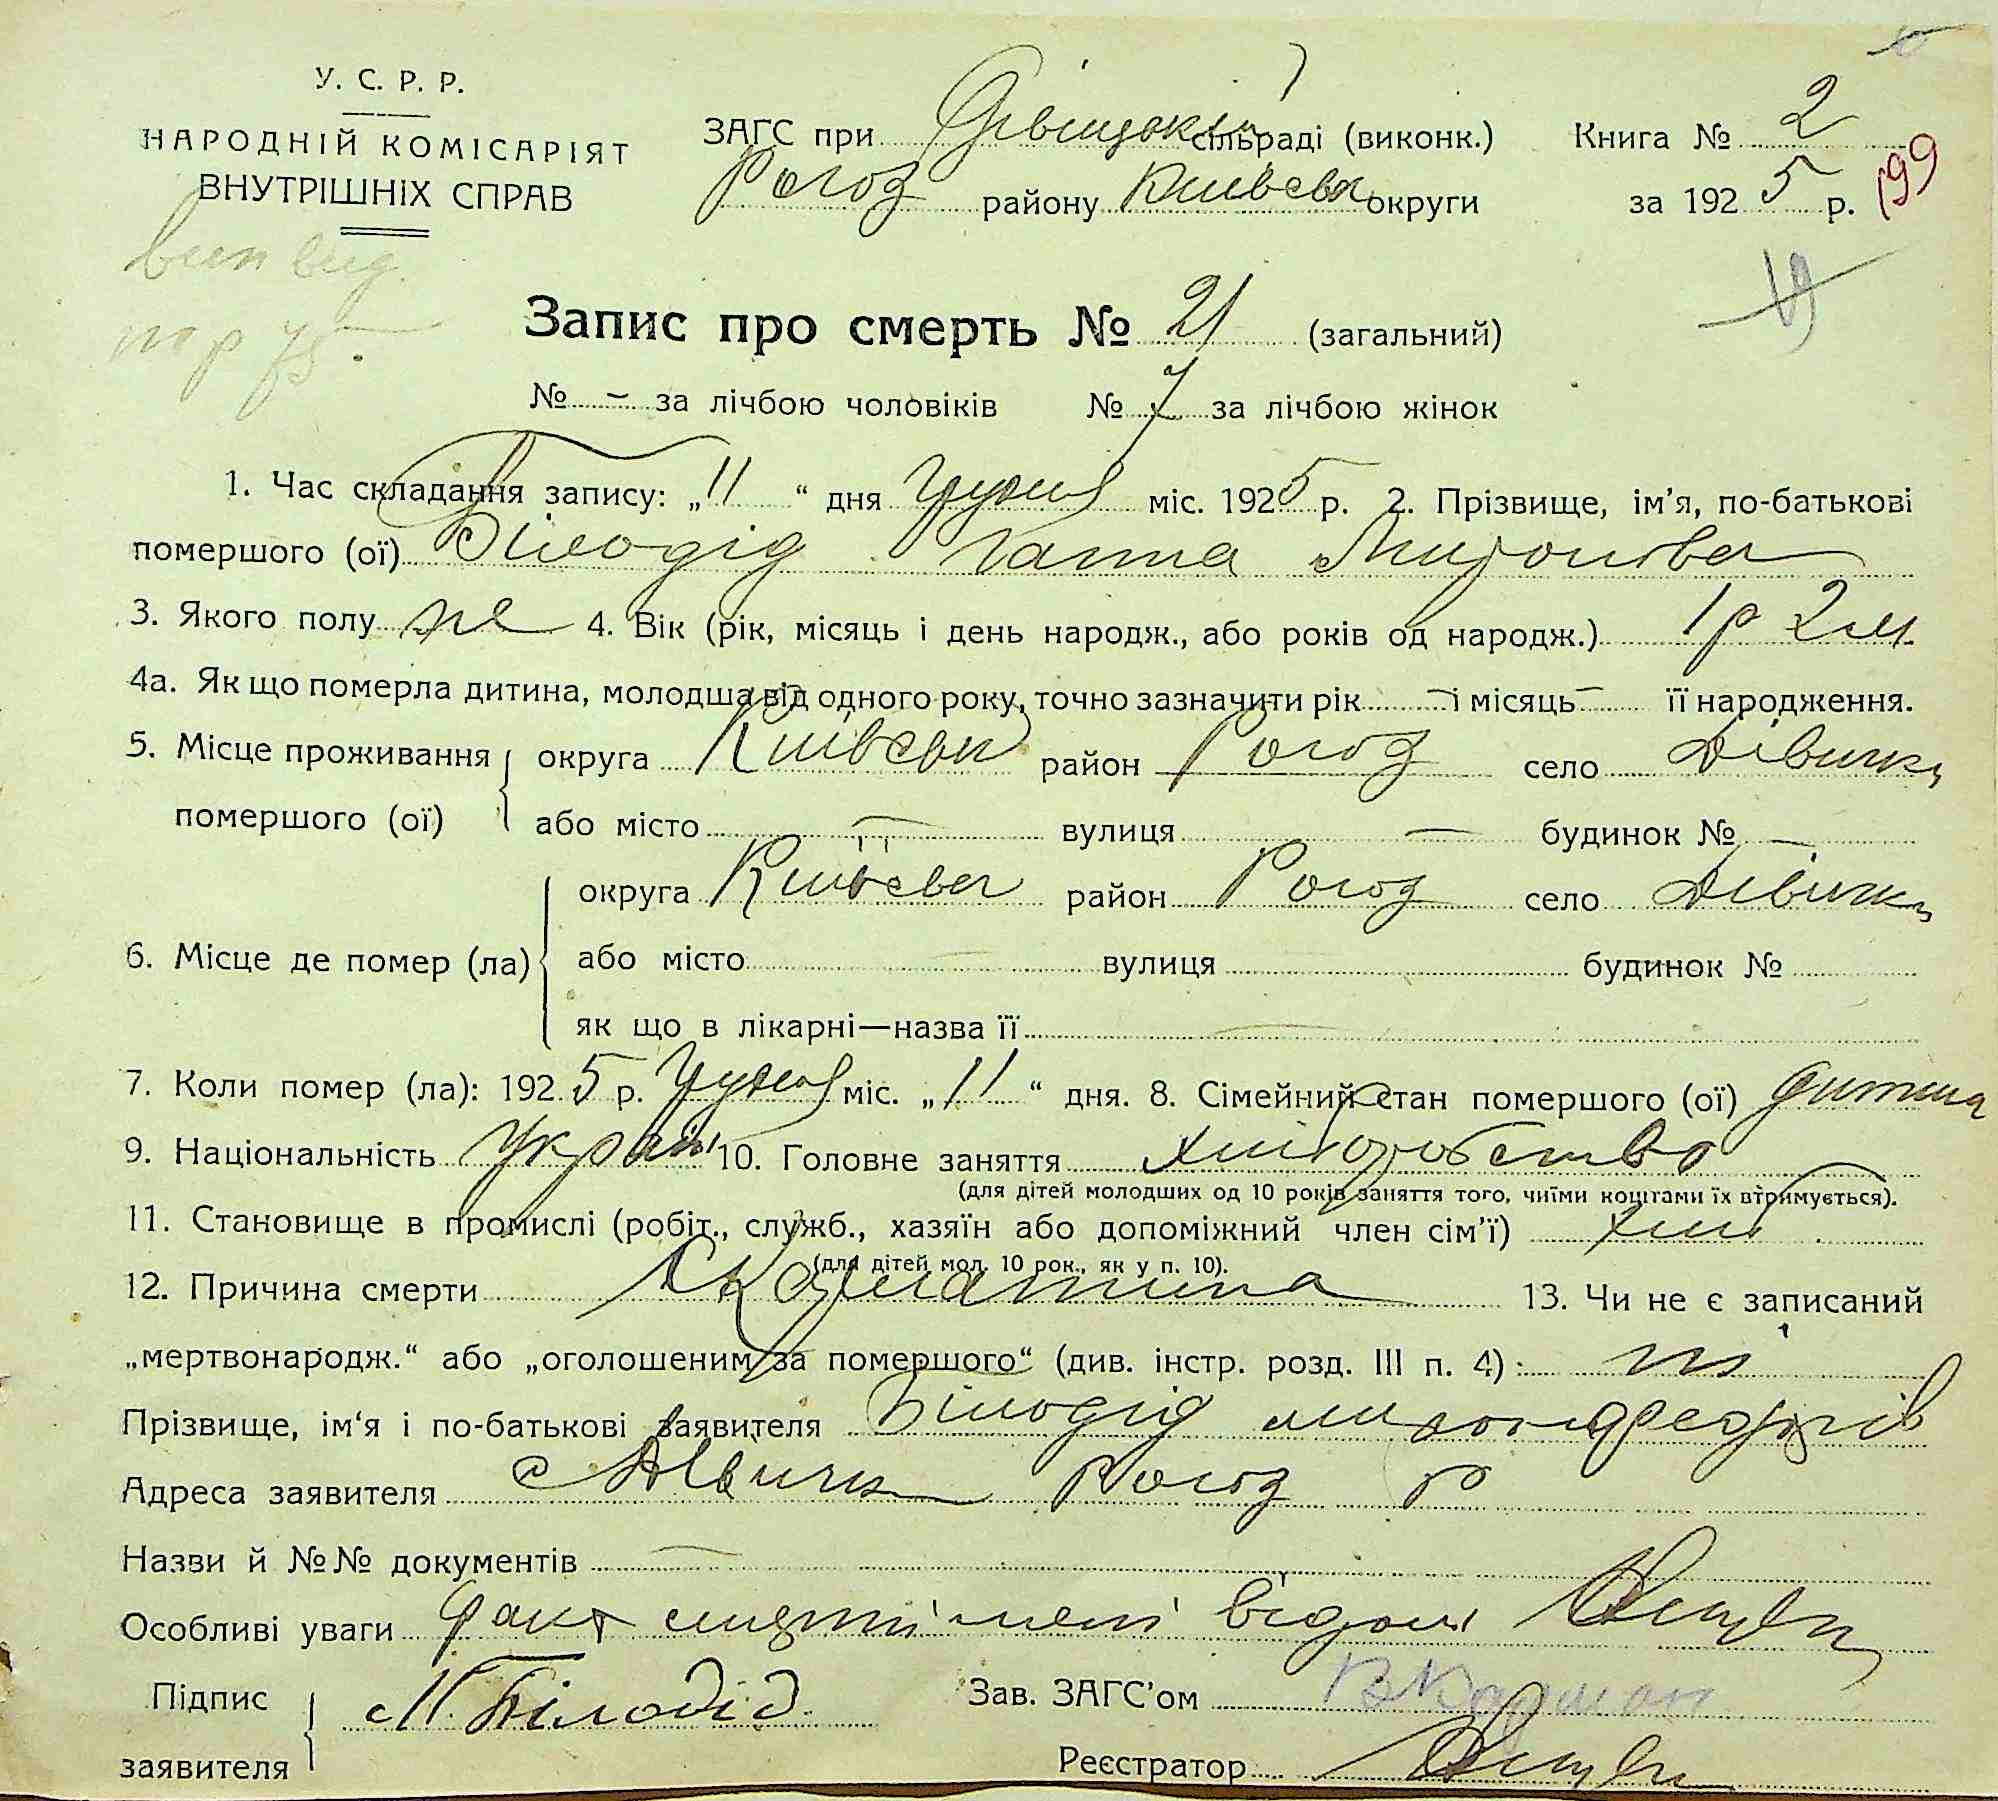 У. С. Р. Р.
НАРОДНІЙ КОМІСАРІЯТ
ВНУТРІШНІХ СПРАВ
ЗАГС при Дівицькій сільраді (виконк.)
Рогоз району Київськ округи
Книга № 2
за 1925 р.
199
19
Запис про смерть № 21 (загальний)
№ – за лічбою чоловіків № 7 за лічбою жінок
1. Час складання запису: „11“ дня грудня міс. 1925 р. 2. Прізвище, ім'я, по-батькові
помершого (ої) Білодід Ганна Миронова
3. Якого полу же 4. Вік (рік, місяць і день народж., або років од народж.) 1 р 2 м.
4а. Як що померла дитина, молодша від одного року, точно зазначити рік – і місяць – її народження.
5. Місце проживання помершого (ої) округа Київськ район Рогоз село Дівички
або місто — вулиця — будинок № —
6. Місце де помер (ла) округа Київськ район Рогоз село Дівички
або місто — вулиця будинок №
як що в лікарні—назва її —
7. Коли помер (ла): 1925 р. грудня міс. „11“ дня. 8. Сімейний стан помершого (ої) дитина
9. Національність Україн 10. Головне заняття хліборобство
(для дітей молодших од 10 років заняття того, чиїми коштами їх втримується).
11. Становище в промислі (робіт., служб., хазяїн або допоміжний член сім'ї)
(для дітей мол. 10 рок., як у п. 10).
12. Причина смерти Скарлатина 13. Чи не є записаний
„мертвонародж.“ або „оголошеним за помершого“ (див. інстр. розд. III п. 4): ні
Прізвище, ім'я і по-батькові заявителя Білодід Мирон Федорів
Адреса заявителя с Дівички Рогоз р
Назви й №№ документів —
Особливі уваги факт смерті мені відом
Підпис заявителя М. Білодід
Зав. ЗАГС'ом
Реєстратор